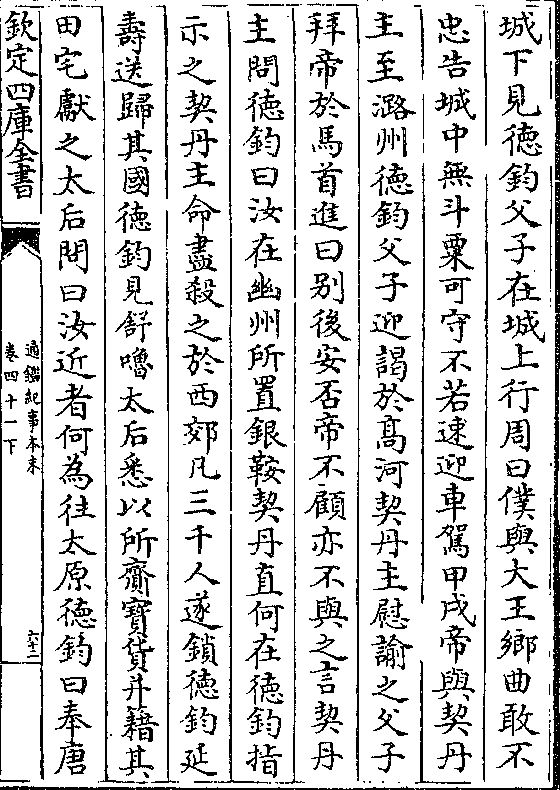 城下見徳鈞父子在城上行周曰僕與大王鄉曲敢不
忠告城中無斗粟可守不若速迎車駕甲戌帝與契丹
主至潞州徳鈞父子迎謁於髙河契丹主慰諭之父子
拜帝於馬首進曰别後安否帝不顧亦不與之言契丹
主問徳鈞曰汝在幽州所置銀鞍契丹直何在徳鈞指
示之契丹主命盡殺之於西郊凡三千人遂鎖徳鈞延
壽送歸其國徳鈞見舒嚕太后悉以所齎寳貨并籍其
田宅獻之太后問曰汝近者何為往太原徳鈞曰奉唐
欽定四庫全書
通鑑紀事本末
卷四十一下
六十二